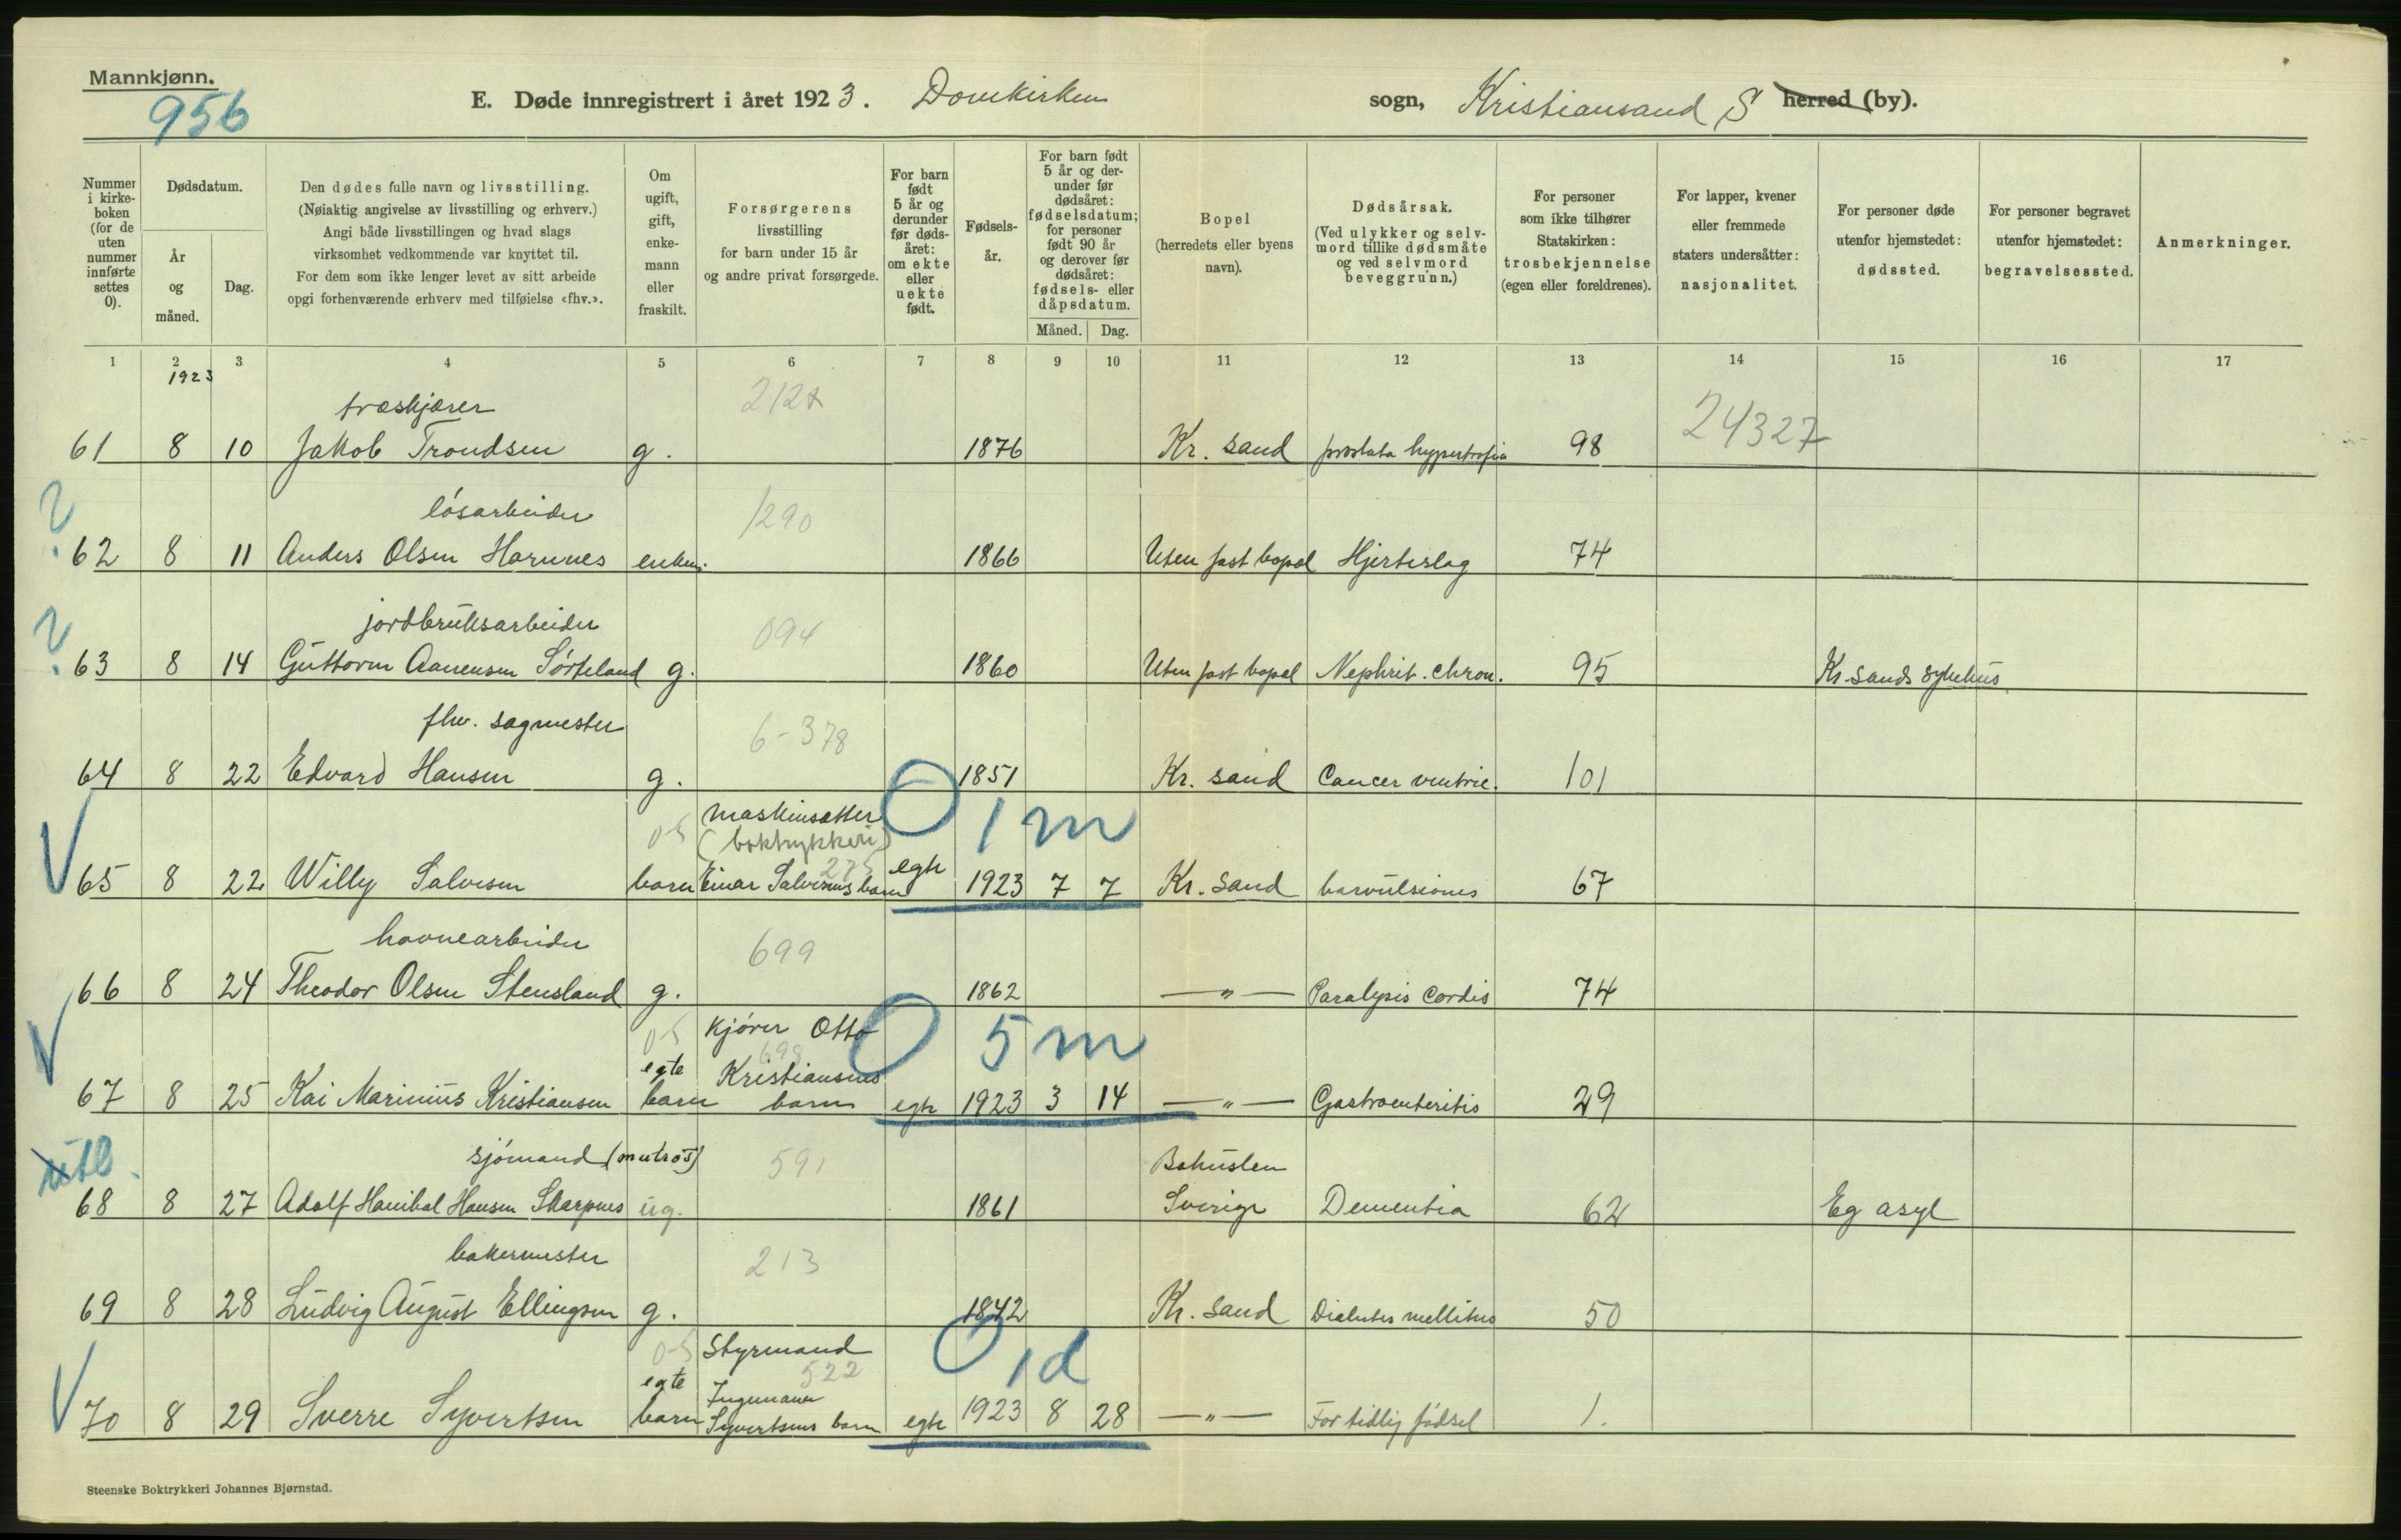 Mannkjønn.
956
E. Døde innregistrert i året 1923. Domkirken sogn, Kristiansand S herred (by).
Nummer i kirke-boken (for de uten nummer innførte settes 0).
Dødsdatum.
År og måned.
Dag.
Den dødes fulle navn og livsstilling.
(Nøiaktig angivelse av livsstilling og erhverv.)
Angi både livsstillingen og hvad slags
virksomhet vedkommende var knyttet til.
For dem som ikke lenger levet av sitt arbeide
opgi forhenværende erhverv med tilføielse «fhv.».
Om ugift, gift, enke-mann eller fraskilt.
Forsørgerens
livsstilling
for barn under 15 år
og andre privat forsørgede.
For barn født 5 år og derunder før døds-året: om ekte eller uekte født.
Fødsels-år.
For barn født 5 år og der-under før dødsåret: fødselsdatum; for personer født 90 år og derover før dødsåret: fødsels- eller dåpsdatum.
Måned. Dag.
Bopel
(herredets eller byens
navn).
Dødsårsak.
(Ved ulykker og selv-
mord tillike dødsmåte
og ved selvmord
beveggrunn.)
For personer
som ikke tilhører
Statskirken:
trosbekjennelse
(egen eller foreldrenes).
For lapper, kvener
eller fremmede
staters undersåtter:
nasjonalitet.
For personer døde
utenfor hjemstedet:
dødssted.
For personer begravet
utenfor hjemstedet:
begravelsessted.
Anmerkninger.
1 2 3 4 5 6 7 8 9 10 11 12 13 14 15 16 17
1923
træskjærer 212x 24327
61 8 10 Jakob Trondsen g. 1876 Kr. sand prostata hypertrofia 98
? løsarbeider 1290
62 8 11 Anders Olsen Harnnes enkem. 1866 Uten fast bopæl Hjerteslag 74
? jordbruksarbeider 094
63 8 14 Guttorm Aanensen Sørteland g. 1860 Uten fast bopæl Nephrit. chron. 95 Kr.sands sykehus
fhv. sagmester 6-378
64 8 22 Edvard Hansen g. 1851 Kr. sand Cancer ventric. 101
0-5 maskinsætter 1 m
(boktrykkeri)
275
65 8 22 Willy Salvesen barn Einar Salvesens barn egte 1923 7 7 Kr. sand convulsiones 67
havnearbeider 699
66 8 24 Theodor Olsen Stensland g. 1862 —"— Paralysis Cordis 74
0-5 Kjører Otto 5 m
698
egte Kristiansens
67 8 25 Kai Marinius Kristiansen barn barn egte 1923 3 14 —"— Gastroenteritis 29
utl. sjømand (matros) 591 Bohuslen
68 8 27 Adolf Hanibal Hansen Skarpnes ug. 1861 Sverige Dementia 62 Eg asyl
bakermester 213
69 8 28 Ludvig August Ellingsen g. 1842 Kr. sand Diabetes mellitus 50
0-5 Styrmand 1 d
522
egte Ingemann
70 8 29 Sverre Syvertsen barn Syvertsens barn egte 1923 8 28 —"— For tidlig fødsel 1.
Steenske Boktrykkeri Johannes Bjørnstad.